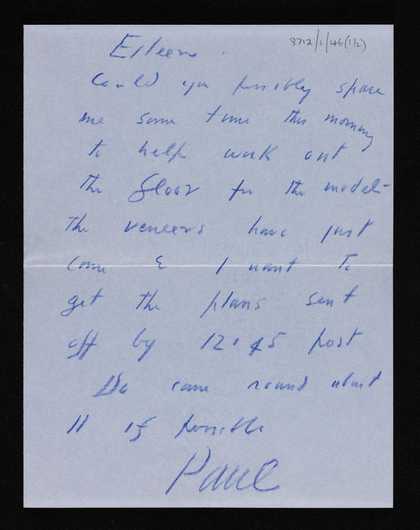 8712/1/46(1/2)
Eileen.
Could you possibly spare
me some time this morning
to help work out
the floor for the model -
the veneers have just
come & I want to
get the plans sent
off by 12.45 post
Do come round about
11 if possible
Paul